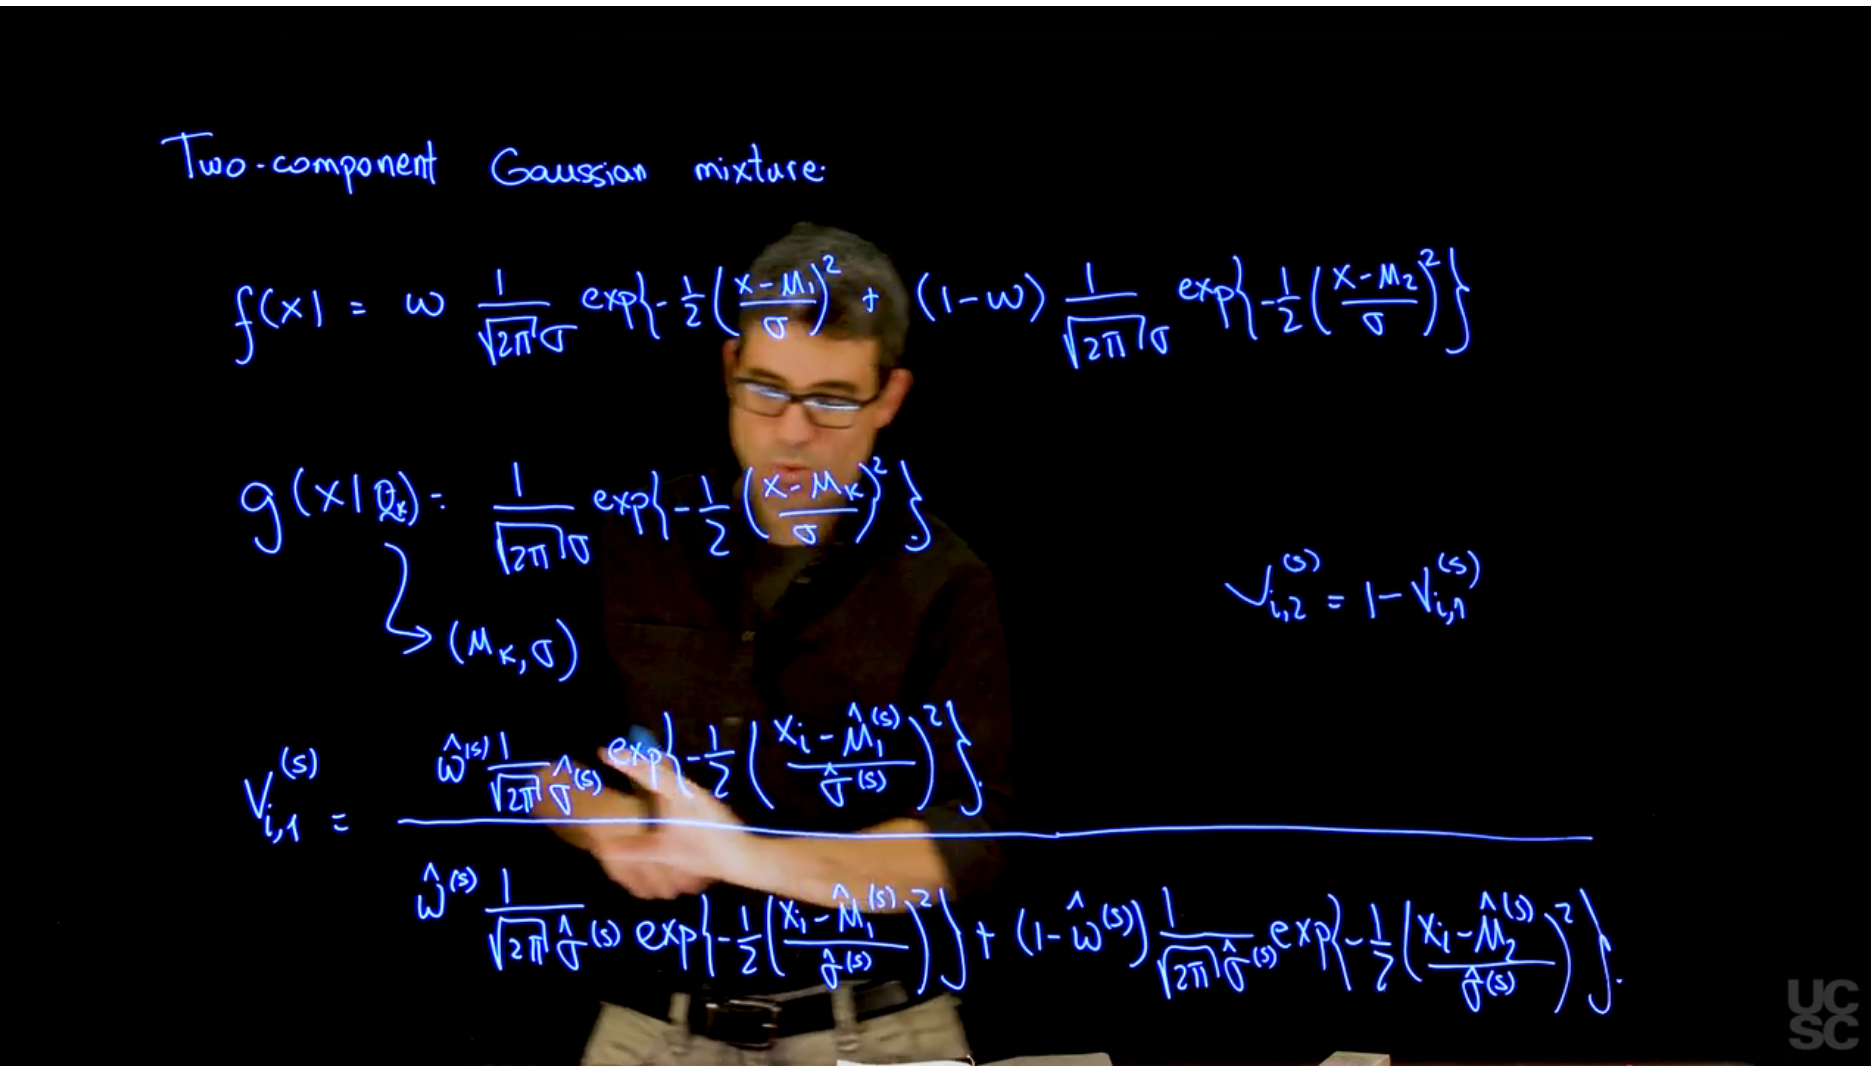 Two-component Gaussian mixture:
f(x) = ω 1/(√2π σ) exp{-1/2 ((x-μ₁)/σ)² + (1-ω) 1/(√2π σ) exp{-1/2 ((x-μ₂)/σ)²}
g(x|θₖ) = 1/(√2π σ) exp{-1/2 ((x-μₖ)/σ)²}
V_{i,2}^{(s)} = 1 - V_{i,1}^{(s)}
↳ (μₖ, σ)
V_{i,1}^{(s)} = ω̂^{(s)} 1/(√2π σ̂^{(s)}) exp{-1/2 ((x_i - μ̂₁^{(s)})/σ̂^{(s)})²}.
ω̂^{(s)} 1/(√2π σ̂^{(s)}) exp{-1/2 ((x_i - μ̂₁^{(s)})/σ̂^{(s)})²} + (1-ω̂^{(s)}) 1/(√2π σ̂^{(s)}) exp{-1/2 ((x_i - μ̂₂^{(s)})/σ̂^{(s)})²}.
UC
SC